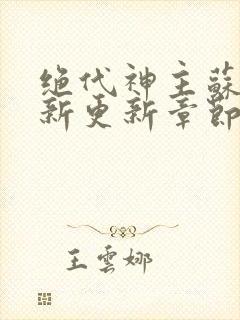 绝代神主蘇
新更新章節
王雲娜